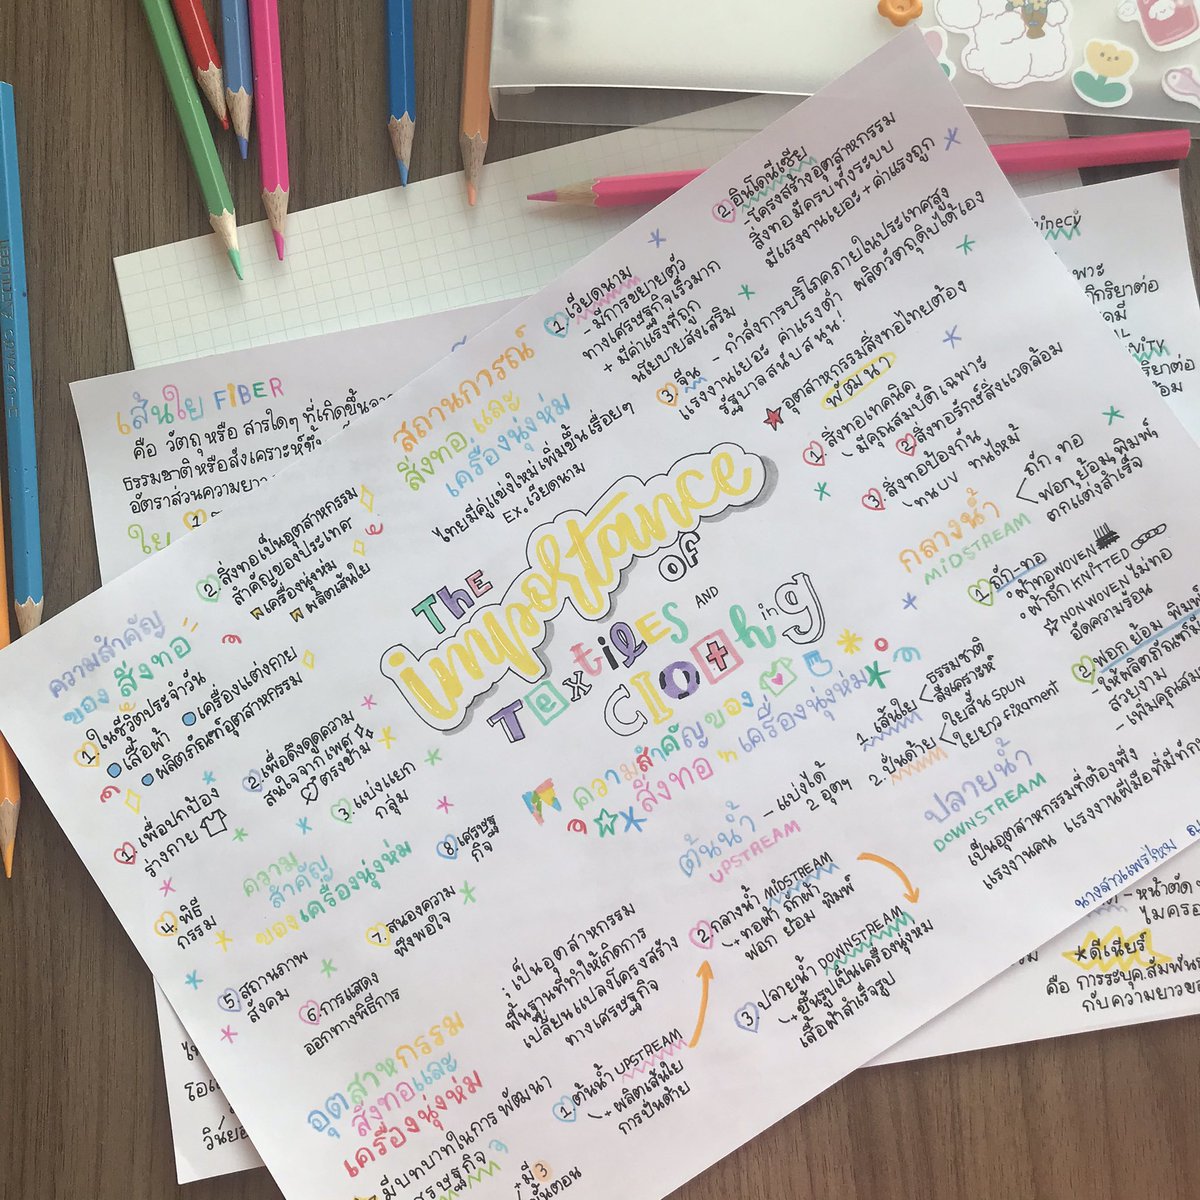 The
importance
OF
Textiles AND
Clothing
ความสำคัญของ
สิ่งทอ เครื่องนุ่งห่ม
ความสำคัญ
ของ สิ่งทอ
1 ในชีวิตประจำวัน
เสื้อผ้า
เครื่องแต่งกาย
ผลิตภัณฑ์อุตสาหกรรม
2. สิ่งทอเป็นอุตสาหกรรม
สำคัญของประเทศ
เครื่องนุ่งห่ม
ผลิตเส้นใย
ความ
สำคัญ
ของเครื่องนุ่งห่ม
1. เพื่อปกป้อง
ร่างกาย
2. เพื่อดึงดูดความ
สนใจจากเพศ
ตรงข้าม
3. แบ่งแยก
กลุ่ม
4. พิธี
กรรม
5 สถานภาพ
สังคม
6. การแสดง
ออกทางพิธีการ
7. สนองความ
พึงพอใจ
8 เศรษฐ
กิจ
สถานการณ์
สิ่งทอ และ
เครื่องนุ่งห่ม
ไทยมีคู่แข่งใหม่เพิ่มขึ้นเรื่อยๆ
EX. เวียดนาม
1. เวียดนาม
- มีการขยายตัว
ทางเศรษฐกิจเร็วมาก
+ มีค่าแรงที่ถูก
นโยบายส่งเสริม
2. อินโดนีเซีย
- โครงสร้างอุตสาหกรรม
สิ่งทอ มีครบทั้งระบบ
มีแรงงานเยอะ + ค่าแรงถูก
3 จีน - กำลังการบริโภคภายในประเทศสูง
แรงงานเยอะ ค่าแรงต่ำ ผลิตวัตถุดิบได้เอง
รัฐบาลสนับสนุน
อุตสาหกรรมสิ่งทอไทยต้อง
พัฒนา
1. สิ่งทอเทคนิค
- มีคุณสมบัติเฉพาะ
2 สิ่งทอรักษ์สิ่งแวดล้อม
3 สิ่งทอป้องกัน
ทนไหม้
กลางน้ำ
MIDSTREAM
ถัก, ทอ
ฟอก, ย้อม, พิมพ์,
ตกแต่งสำเร็จ
1 ถัก-ทอ
ผ้าทอ WOVEN
ผ้าถัก KNITTED
NONWOVEN ไม่ทอ
อัดความร้อน
2 ฟอก ย้อม พิมพ์
- ให้ผลิตภัณฑ์
สวยงาม
- เพิ่มคุณสม
ต้นน้ำ - แบ่งได้
UPSTREAM 2 อุตฯ
1. เส้นใย ธรรมชาติ
สังเคราะห์
2. ปั่นด้าย ใยสั้น SPUN
ใยยาว Filament
ปลายน้ำ
DOWNSTREAM
เป็นอุตสาหกรรมที่ต้องพึ่ง
แรงงานคน แรงงานฝีมือที่มีทัก
อุตสาหกรรม
สิ่งทอและ
เครื่องนุ่งห่ม
; เป็นอุตสาหกรรม
พื้นฐานที่ทำให้เกิดการ
เปลี่ยนแปลงโครงสร้าง
ทางเศรษฐกิจ
มีบทบาทในการพัฒนา
เศรษฐกิจ
+ มี 3
ขั้นตอน
1. ต้นน้ำ UPSTREAM
+ ผลิตเส้นใย
การปั่นด้าย
2. กลางน้ำ MIDSTREAM
+ ทอผ้า ถักผ้า
ฟอก ย้อม พิมพ์
3 ปลายน้ำ DOWNSTREAM
+ ขึ้นรูปเป็นเครื่องนุ่งห่ม
เสื้อผ้าสำเร็จรูป
เส้นใย FIBER
คือ วัตถุหรือ สารใดๆ ที่เกิดขึ้นจาก
ธรรมชาติ หรือสังเคราะห์ขึ้น
อัตราส่วนความยาว
ใย
- หน้าตัด
ดีเนียร์
คือ การระบุค.สัมพันธ์
กับความยาวของ